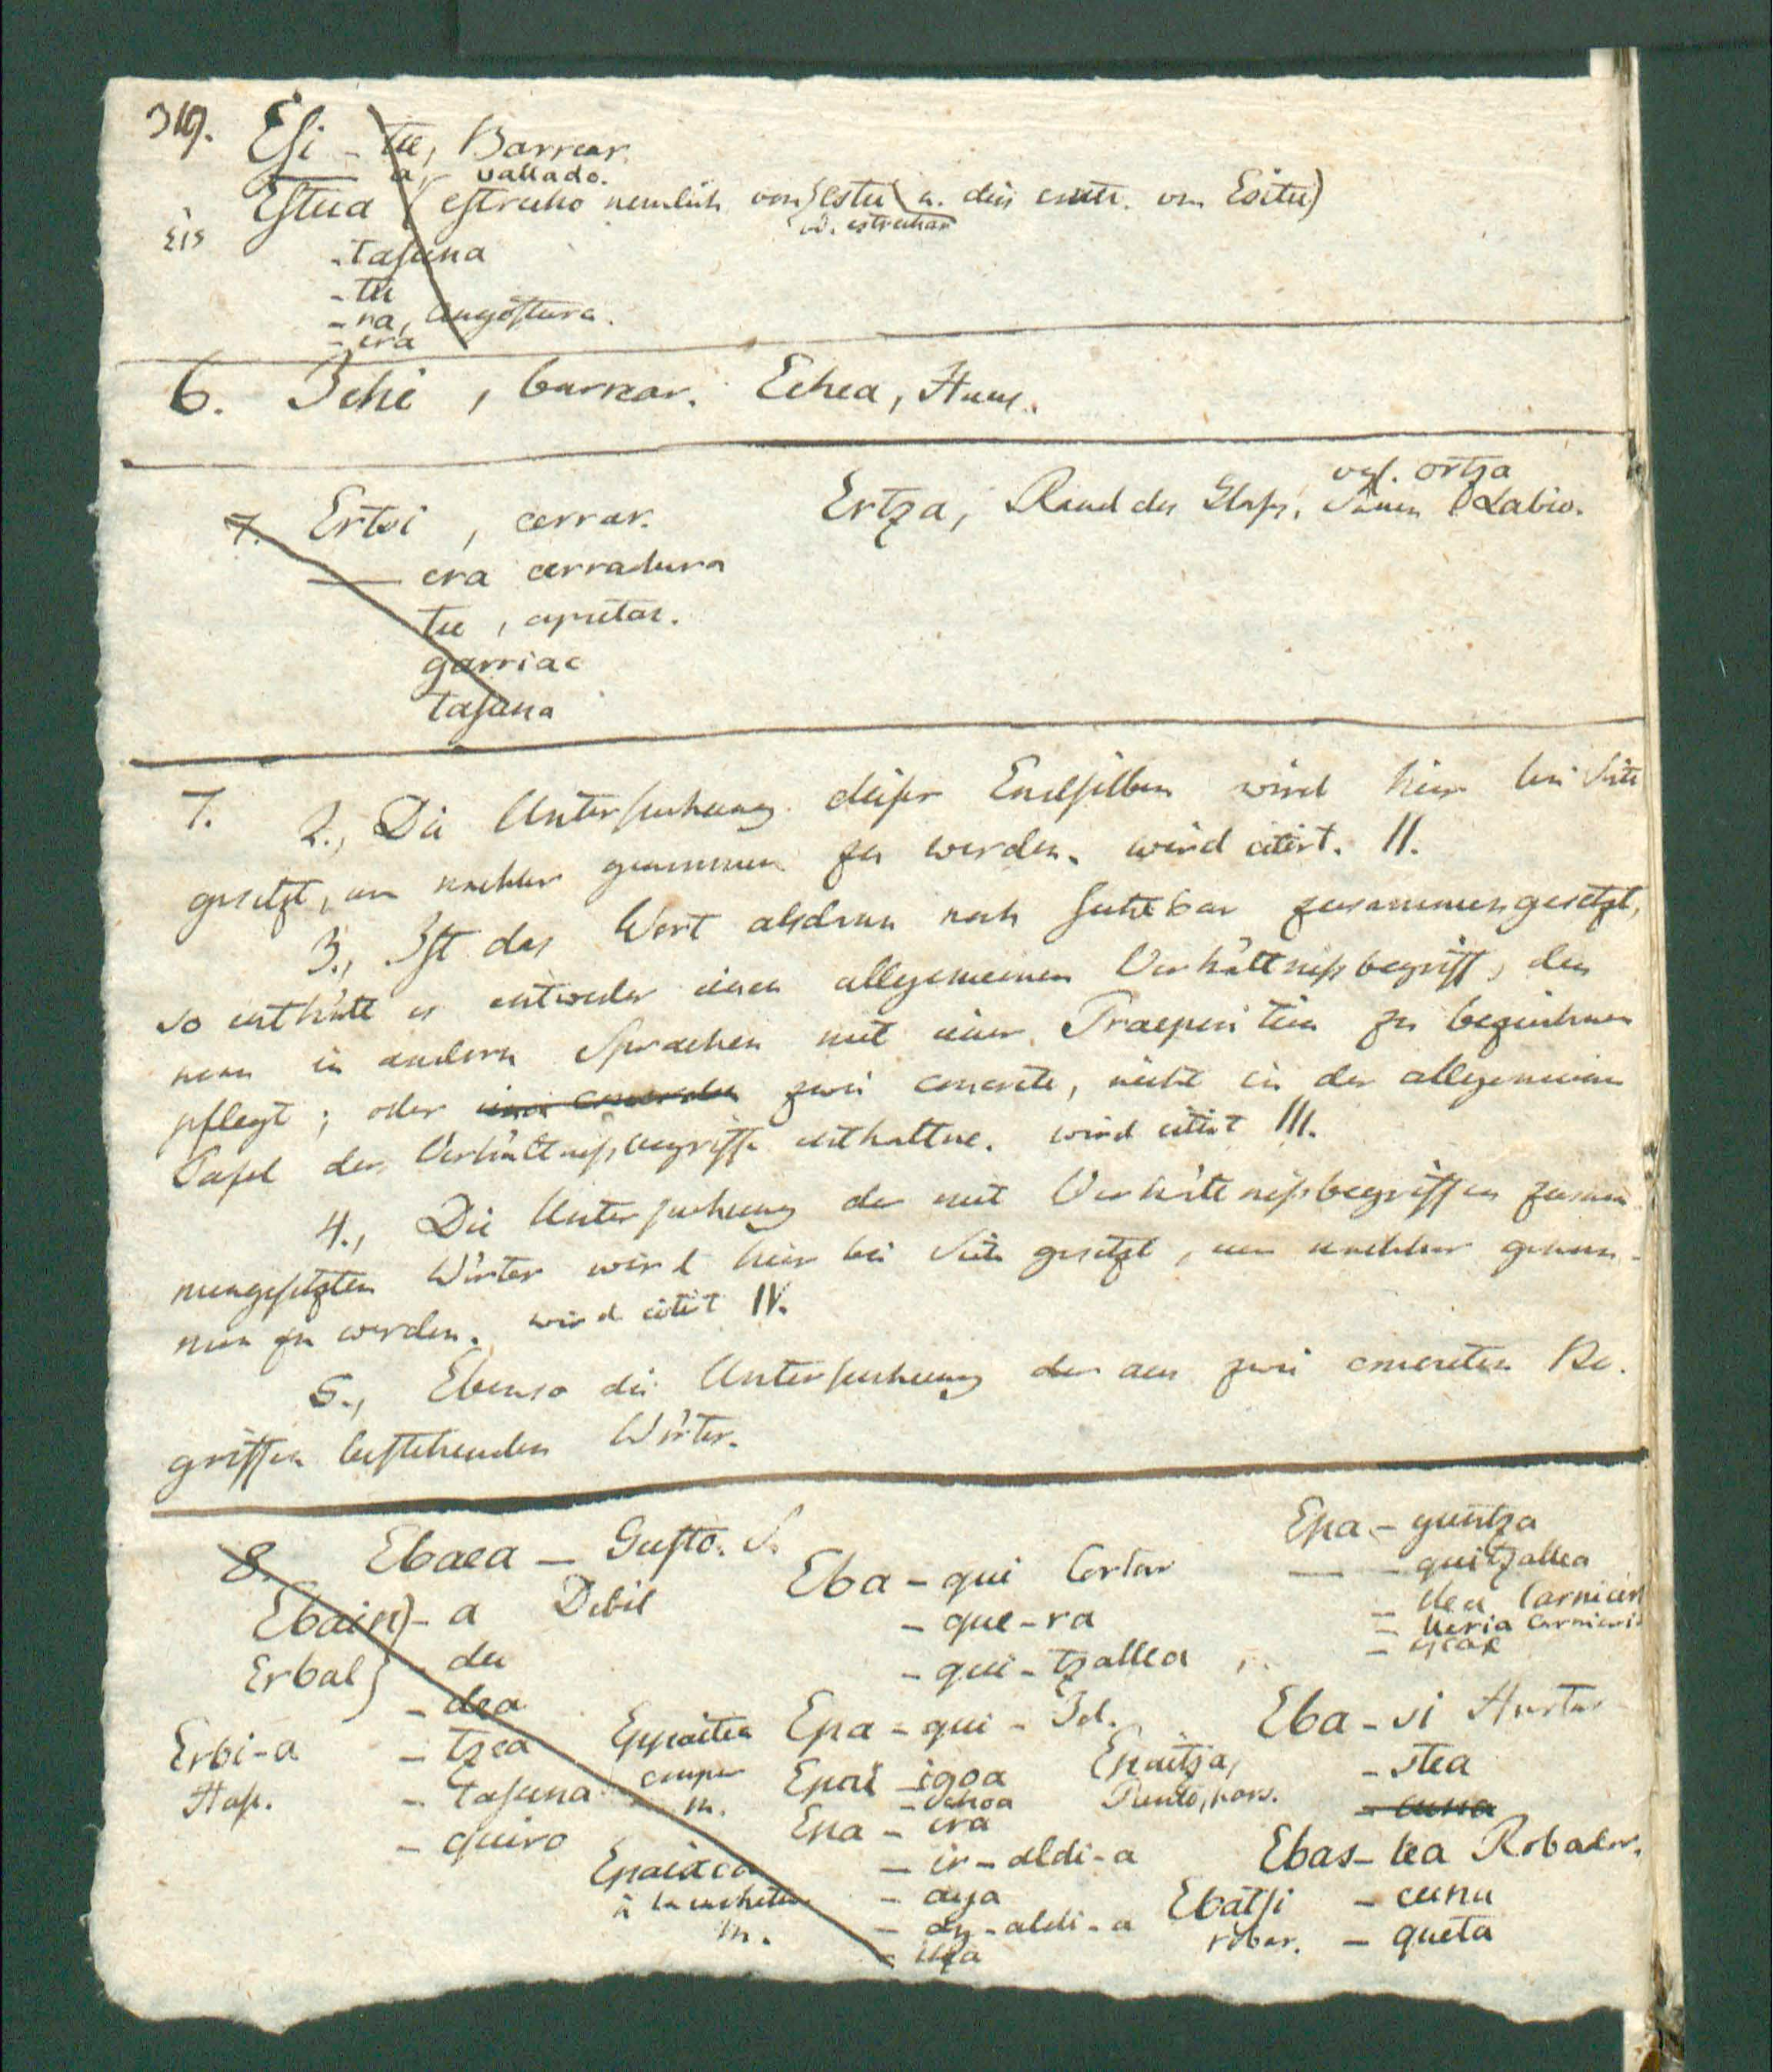 Esi - tu, Barrear.
a, vallado.
Estua (estrecho nemlich von estu u. dies contr. von Esitu)
v. estrechar
Eis
- tasuna
- tu
- ra, angostura.
- era
6. Ichi, barrear. Echea, Haus.
vgl. ortza
7. Ertsi, cerrar. Ertza, Rand des Glases, Labio.
era cerradura
tu, apretar.
garriac
tasuna
7. 2., Die Untersuchung dieser Endsilben wird hier bei Seite
gesetzt, um nachher genommen zu werden. wird citirt. II.
3., Ist das Wort alsdann noch sichtbar zusammengesetzt,
so enthält es entweder einen allgemeinen Verhältnissbegriff, den
man in andern Sprachen mit einer Praeposition zu bezeichnen
pflegt; oder zwei concrete, nicht in der allgemeinen
Tafel der Verhältnissbegriffe enthaltne. wird citirt III.
4., Die Untersuchung der mit Verhältnissbegriffen zusam
mengesetzten Wörter wird hier bei Seite gesetzt, um nachher genom-
men zu werden. wird citirt IV.
5., Ebenso die Untersuchung der aus zwei concreten Be-
griffen bestehenden Wörter.
8. Ebaea - Gusto. S.
Ebain) - a Debil
Erbal) - du
- dea
Erbi-a - tzea
Has. - tasuna
- quiro
Eba - qui Cortar
- que-ra
- qui - tzallea
Epa - qui - Id.
Epai - igoa
- ochoa
Epa - era
- ir - aldi - a
- aya
- aldi - a
Epaiaca
à la
m.
Epa - quintza
- quitzallea
- llea Carnicero
- lleria Carniceria
Epaitza,
Punto,
Eba - si Hurtar
- stea
- cuna
Ebas - lea Robador.
Ebatsi - cuna
robar. - queta